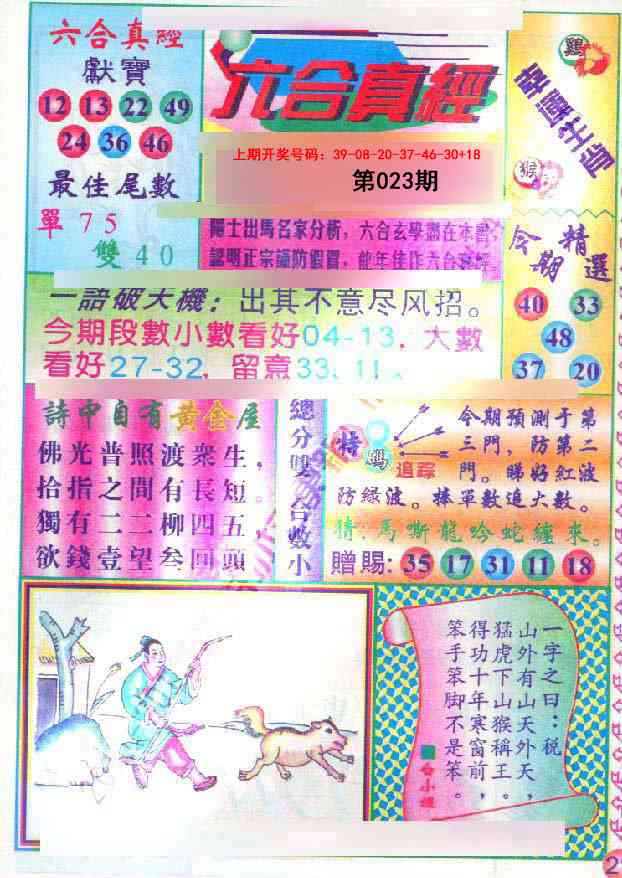 六合真經
獻寶
12 13 22 49
24 36 46
最佳尾數
單 75
雙 40
六合真經
上期开奖号码：39-08-20-37-46-30+18
第023期
雞
幸運生肖
猴
陽士出馬名家分析，六合玄學盡在本書，
認明正宗謹防假冒，
今期精選
40 33
48
37 20
一語破天機：出其不意尽风招。
今期段數小數看好04-13，大數
看好27-32，留意33、11。
詩中自有黄金屋
佛光普照渡衆生，
拾指之間有長短。
獨有二二柳四五，
欲錢壹望叁回頭
總分雙合數小
特碼
追踪
今期預測于第
三門，防第二
門。睇好紅波
防緑波。捧單數追大數。
猜：馬嘶龍吟蛇纏來。
贈賜：35 17 31 11 18
一字之曰：税
山外有山天外天，
猛虎下山猴稱王。
得功十年寒窗前，
笨手笨脚不是笨。
2